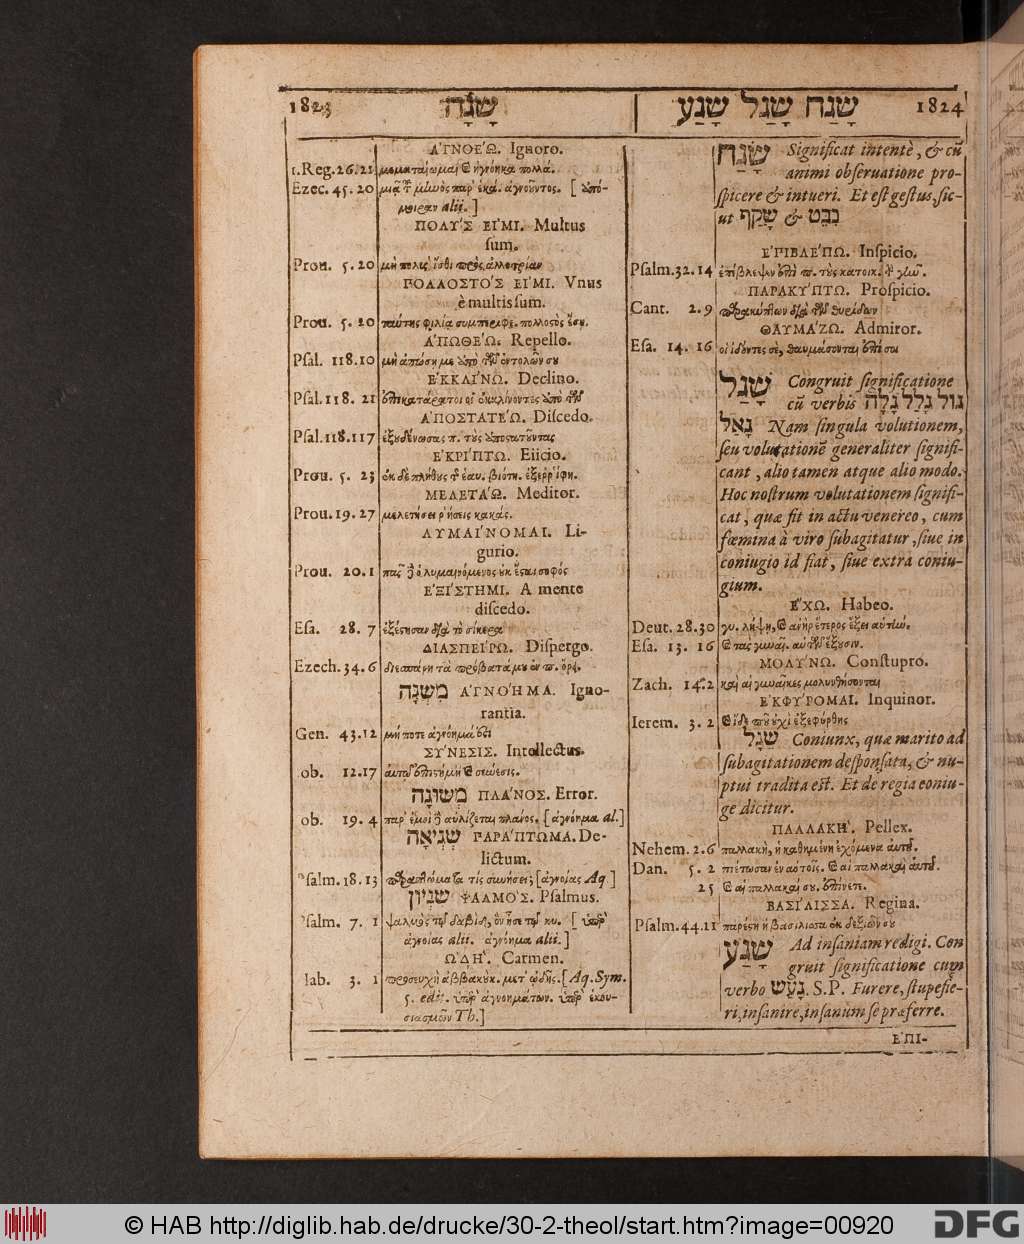 1823 שָׁגָה
שָׁגַח שָׁגַל שָׁגַע 1824
ἈΓΝΟΕΏ. Ignoro.
1.Reg.26.21 καὶ ἠγνόηκα πολλά.
Ezec. 45. 20 παρ᾽ ἑκά. ἀγνοοῦντος. [ ὑπό-
μοιραν alii. ]
ΠΟΛΥΣ ΕΙΜΙ. Multus
ſum.
Prou. 5. 20 μὴ πολὺς ἴσθι πρὸς ἀλλοτρίαν
ΠΟΛΛΟΣΤΟΣ ΕΙΜΙ. Vnus
è multis ſum.
Prou. 5. 20 φιλίᾳ συμπεριφε. πολλοστὸς ἔσῃ.
ἈΠΩΘΕΏ. Repello.
Pſal. 118.10 μὴ ἀπώσῃ με ἀπὸ τῶν ἐντολῶν σου
ἘΚΚΛΙΝΩ. Declino.
Pſal.118. 21 ἐπικατάρατοι οἱ ἐκκλίνοντες ἀπὸ τῶν
ἈΠΟΣΤΑΤΕΏ. Diſcedo.
Pſal.118.117 ἐξουδένωσας π. τοὺς ἀποστατοῦντας
ἘΚΡΙΠΤΩ. Eiicio.
Prou. 5. 23 ἐκ δὲ πλήθους τῆς ἑαυ. βιότη. ἐξεῤῥίφη.
ΜΕΛΕΤΑΏ. Meditor.
Prou.19. 27 μελετήσει ῥήσεις κακάς.
ΛΥΜΑΙΝΟΜΑΙ. Li-
gurio.
Prou. 20.1 πᾶς δὲ ὁ λυμαινόμενος οὐκ ἔσται σοφός
ἘΞΙΣΤΗΜΙ. A mente
diſcedo.
Eſa. 28. 7 ἐξέστησαν διὰ τὸ σίκερα
ΔΙΑΣΠΕΙΡΩ. Diſpergo.
Ezech.34.6 διεσπάρη τὰ πρόβατά μου ἐν π. ὄρει.
מִשְׁגֶּה ἈΓΝΟΗΜΑ. Igno-
rantia.
Gen. 43.12 μή ποτε ἀγνόημά ἐστι
ΣΥΝΕΣΙΣ. Intellectus.
ob. 12.17 σύνεσις.
מְשׁוּגָה ΠΛΑΝΟΣ. Error.
ob. 19. 4 παρ᾽ ἐμοὶ δὲ αὐλίζεται πλάνος. [ἀγνόημα al.]
שְׁגִיאָה ΠΑΡΑΠΤΩΜΑ. De-
lictum.
Pſalm.18.13 παραπτώματα τίς συνήσει; [ἀγνοίας Aq.]
שִׁגָּיוֹן ΨΑΛΜΟΣ. Pſalmus.
Pſalm. 7. 1 ψαλμὸς τῷ δαβίδ, ὃν ᾖσε τῷ κυ. [ ὑπὲρ
ἀγνοίας alii. ἀγνόημα alii.]
ᾨΔΗ. Carmen.
Hab. 3. 1 προσευχὴ ἀββακούκ. μετ᾽ ᾠδῆς. [Aq.Sym.
5. edit. ὑπὲρ ἀγνοημάτων. ὑπὲρ ἑκου-
σιασμῶν Th.]
שָׁגַח Significat intentè, & cũ
animi obſeruatione pro-
ſpicere & intueri. Et eſt geſtus, ſic-
ut שָׁקַף & נִבַּט
ἘΠΙΒΛΕΠΩ. Inſpicio.
Pſalm.32.14 ἐπέβλεψεν ἐπὶ π. τοὺς κατοικ. τὴν γῆν.
ΠΑΡΑΚΥΠΤΩ. Proſpicio.
Cant. 2. 9 παρακύπτων διὰ τῶν θυρίδων
ΘΑΥΜΑΖΩ. Admiror.
Eſa. 14. 16 οἱ ἰδόντες σε, θαυμάσονται ἐπί σοι
שָׁגַל Congruit ſignificatione
cũ verbis גּוּל גָּלַל גָּלָה
גָּאַל Nam ſingula volutionem,
ſeu volutationẽ generaliter ſignifi-
cant, alio tamen atque alio modo.
Hoc noſtrum volutationem ſignifi-
cat, quæ fit in actu venereo, cum
fœmina à viro ſubagitatur, ſiue in
coniugio id fiat, ſiue extra coniu-
gium.
ἜΧΩ. Habeo.
Deut. 28.30 γυ. λήψῃ, καὶ ἀνὴρ ἕτερος ἕξει αὐτήν.
Eſa. 13. 16 καὶ τὰς γυναῖ. αὐτῶν ἕξουσιν.
ΜΟΛΥΝΩ. Conſtupro.
Zach. 14.2 καὶ αἱ γυναῖκες μολυνθήσονται
ἘΚΦΥΡΟΜΑΙ. Inquinor.
Ierem. 3. 2 καὶ ἴδε ποῦ οὐχὶ ἐξεφύρθης
שֵׁגָל Coniunx, quæ marito ad
ſubagitationem deſponſata, & nu-
ptui tradita eſt. Et de regia coniu-
ge dicitur.
ΠΑΛΛΑΚΗ. Pellex.
Nehem. 2.6 παλλακὴ, ἡ καθημένη ἐχόμενα αὐτοῦ.
Dan. 5. 2 πιέτωσαν ἐν αὐτοῖς. καὶ αἱ παλλακαὶ αὐτοῦ.
25 καὶ αἱ παλλακαί σου. ἐπίνετε.
ΒΑΣΙΛΙΣΣΑ. Regina.
Pſalm.44.11 παρέστη ἡ βασίλισσα ἐκ δεξιῶν σου
שָׁגַע Ad inſaniam redigi. Con
gruit ſignificatione cum
verbo גָּעַשׁ. S.P. Furere, ſtupefie-
ri, inſanire, inſanum ſe præferre.
ἘΠΙ-
© HAB http://diglib.hab.de/drucke/30-2-theol/start.htm?image=00920
DFG